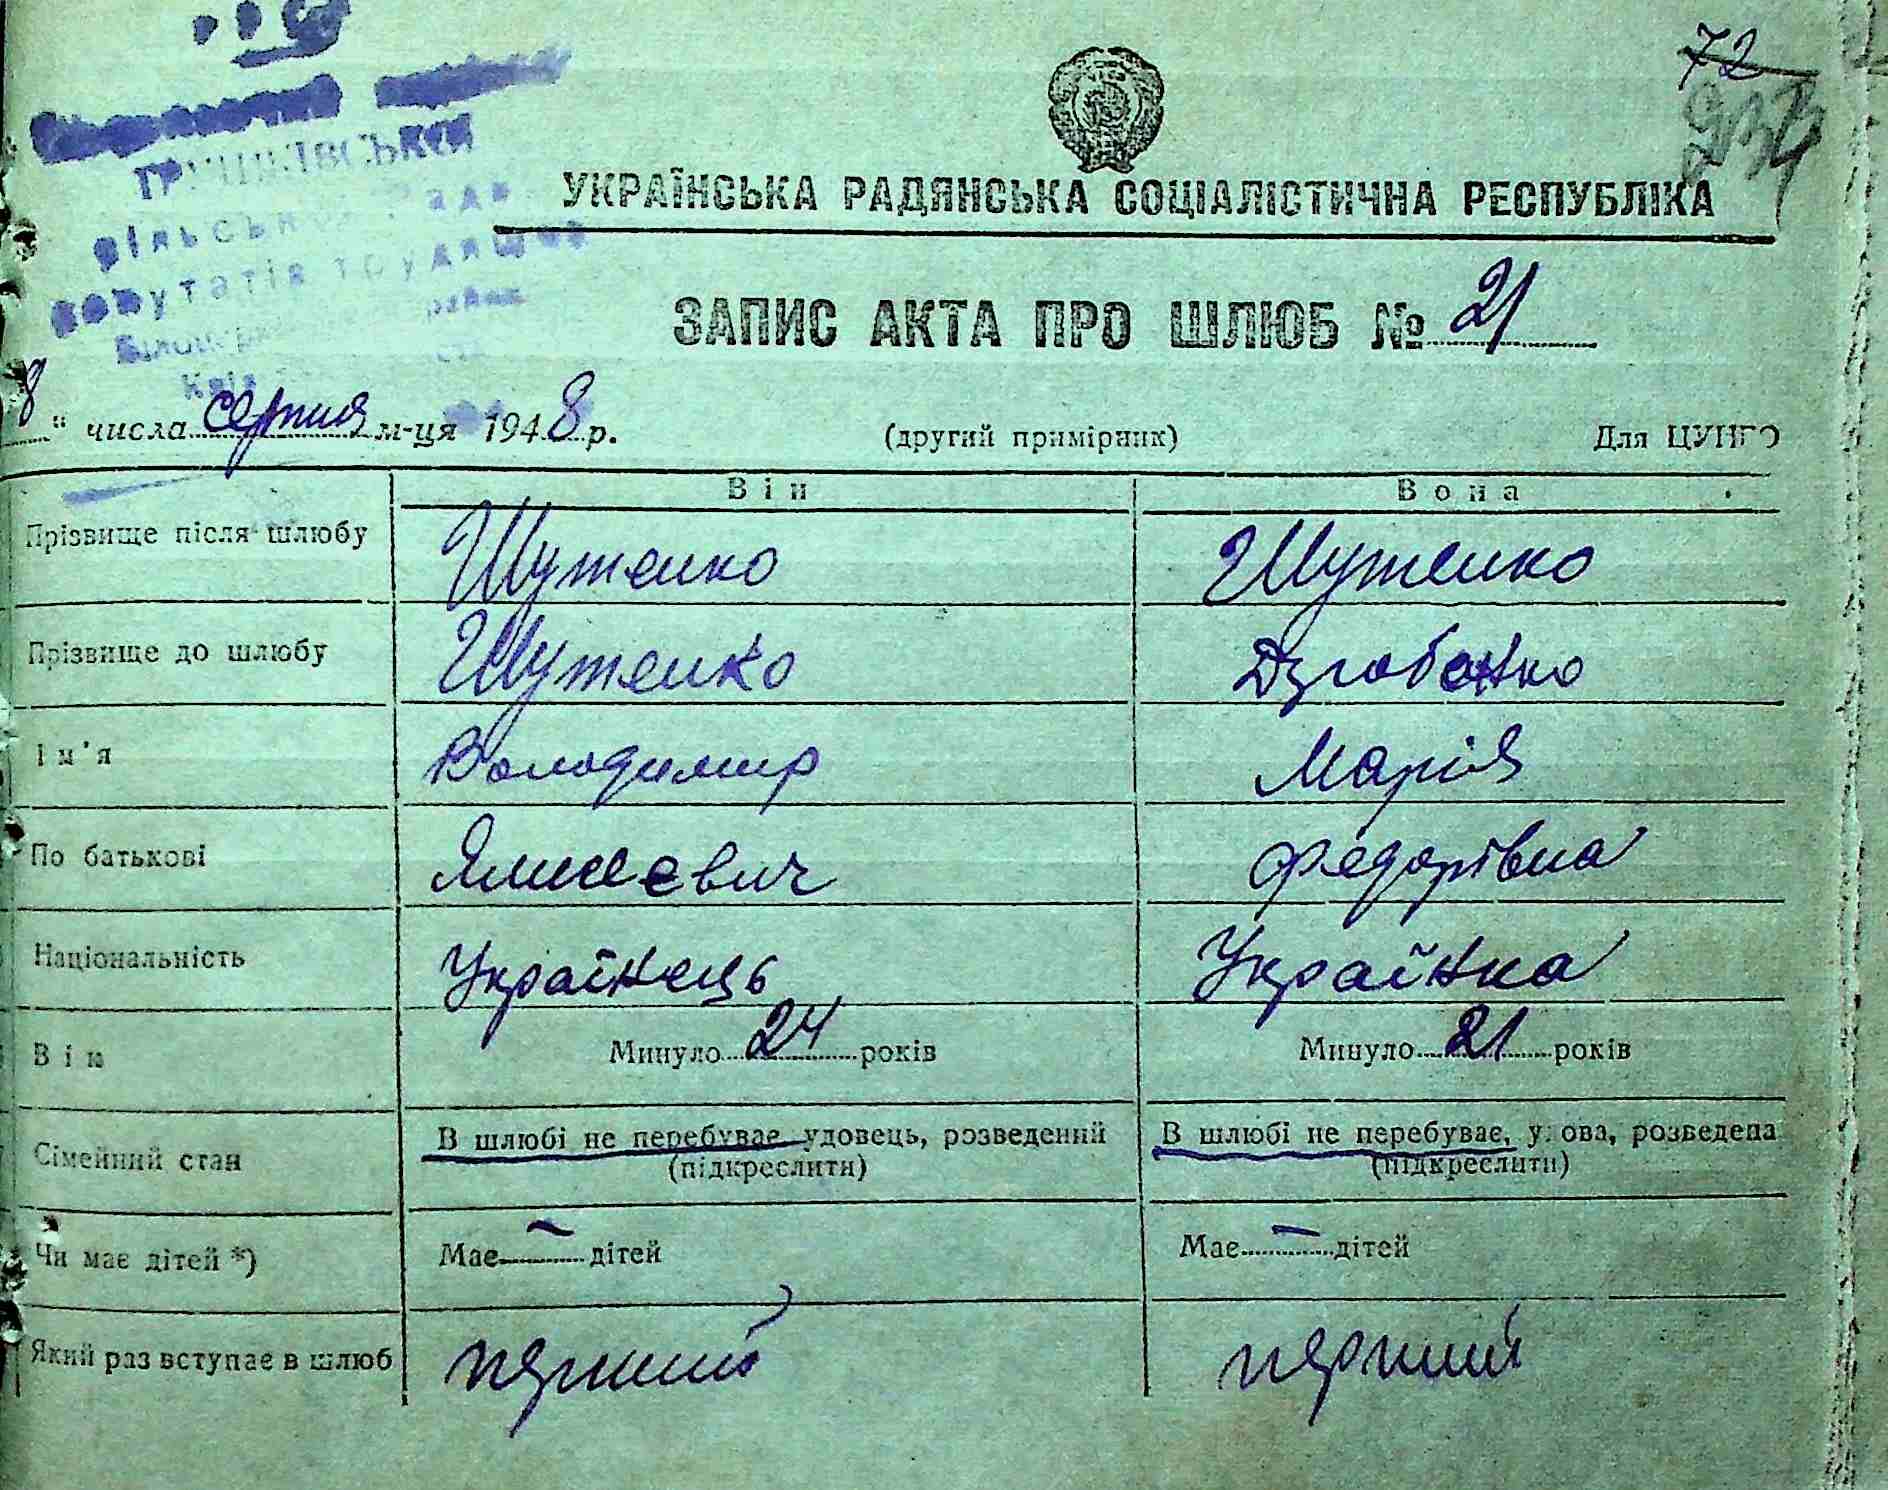 72
УКРАЇНСЬКА РАДЯНСЬКА СОЦІАЛІСТИЧНА РЕСПУБЛІКА
ЗАПИС АКТА ПРО ШЛЮБ № 21
8 " числа серпня м-ця 1948 р. (другий примірник) Для ЦУНГО
депутатів трудящих
Він Вона
Прізвище після шлюбу Шутенко Шутенко
Прізвище до шлюбу Шутенко
Ім'я Володимир Марія
По батькові Федорівна
Національність Українець Українка
Вік Минуло 24 років Минуло 21 років
Сімейний стан В шлюбі не перебуває удовець, розведений В шлюбі не перебуває, удова, розведена
(підкреслити) (підкреслити)
Чи має дітей *) Має — дітей Має — дітей
Який раз вступає в шлюб перший перший